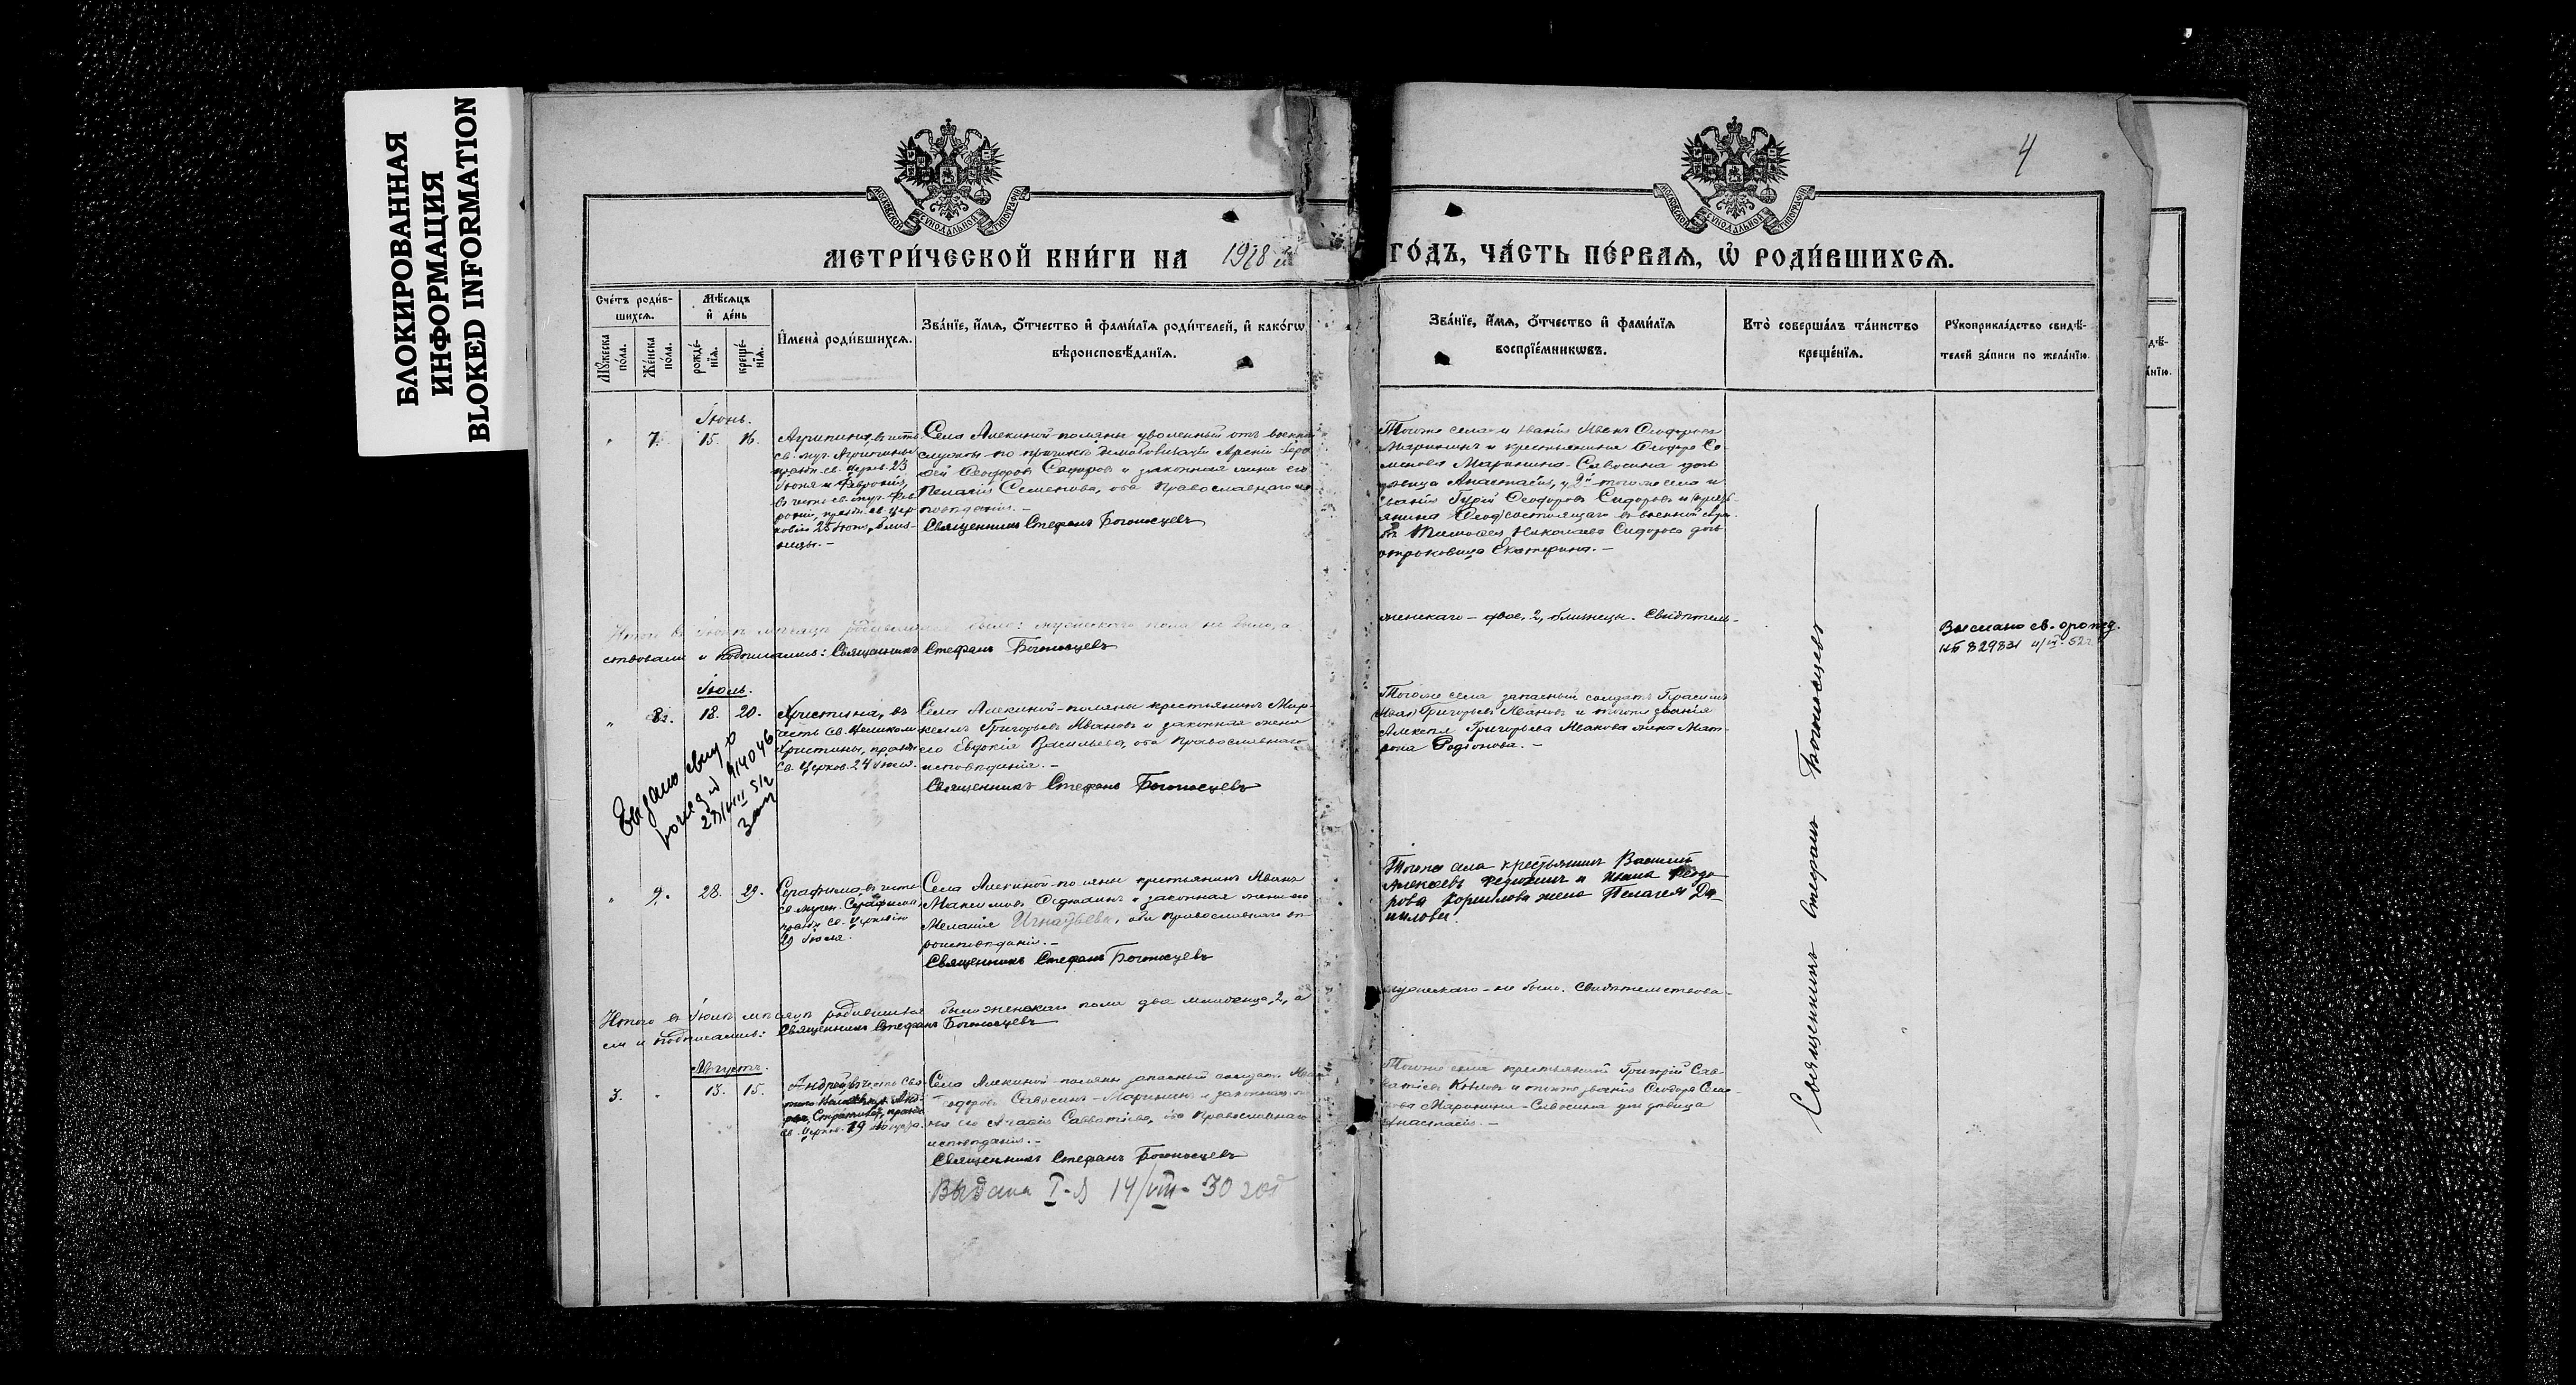 БЛОКИРОВАННАЯ
ИНФОРМАЦИЯ
BLOKED INFORMATION
4
МОСКОВСКОЙ СѴНОДАЛЬНОЙ ТИПОГРАФІИ
МОСКОВСКОЙ СѴНОДАЛЬНОЙ ТИПОГРАФІИ
МЕТРИ́ЧЕСКОЙ КНИ́ГИ НА 1918 й ГО́ДЪ, ЧА́СТЬ ПЕ́РВАѦ, Ѡ҆ РОДИ́ВШИХСѦ.
Сче́тъ роди́в-
шихсѧ.
Мꙋ́жеска по́ла.
Же́нска по́ла.
Мѣ́сѧцъ и҆ де́нь
рожде́-нїѧ.
креще́-нїѧ.
И҆мена̀ роди́вшихсѧ.
Зва́нїе, и҆́мѧ, ѻ҆́тчество и҆ фами́лїѧ роди́телей, и҆ како́гѡ
вѣроисповѣ́данїѧ.
Зва́нїе, и҆́мѧ, ѻ҆́тчество и҆ фами́лїѧ
воспрїе́мникѡвъ.
Кто̀ соверша́лъ та́инство
креще́нїѧ.
Рꙋкоприкла́дство свидѣ́-
телей за́писи по жела́нїю.
Іюнь.
7. 15. 16.
Агрипина, въ честь
св. муч. Агрипины
празн. св. церков. 23
Іюня и Феврония,
въ честь св. муч. Фев
ронии, празн. св. цер
ковію 25 Іюня, близ-
нецы. –
Села Алекиной-поляны уволенный отъ военной
службы по причинѣ демобилизации Арсеній
Ѳеодоровъ Сидоровъ и законная жена его
Пелагія Семенова, оба Православнаго
исповѣданія. –
Священникъ Стефанъ Богоносцевъ
Тогоже села и званія Иванъ Ѳеодоровъ
Маринкинъ и крестьянина Ѳеодора Се
менова Маринина-Савосина дочь
дѣвица Анастасія, у 2й тогоже села и
званія Гурій Ѳеодоровъ Сидоровъ и кресть-
янина состоящаго въ военной служ-
бѣ Тимофея Николаева Сидорова дочь
отроковица Екатерина. –
Итого въ Іюнѣ мѣсяцѣ родившихся было: мужескаго пола не было, а женскаго – двое, 2, близнецы. Свидѣтель-
ствовали и подписались: Священникъ Стефанъ Богоносцевъ
Выслано св. о рожд.
№ 829831
Іюль.
8. 18. 20.
Христина, въ
честь св. великом.
Христины, празн.
св. Церков. 24 Іюля.
Села Алекиной-поляны крестьянинъ Мар-
келлъ Григорьевъ Ивановъ и законная жена
его Евдокія Васильева, оба Православнаго
исповѣданія. –
Священникъ Стефанъ Богоносцевъ
Тогоже села запасный солдатъ Герасимъ
Григорьевъ Ивановъ и тогоже званія
Алексѣя Григорьева Иванова жена Мат-
рона Родіонова. –
Выдано свид о
рожд №
9. 28. 29.
Серафима въ честь
св. мучен. Серафимы,
празн. св. Церковію
29 Іюля.
Села Алекиной-поляны крестьянинъ Иванъ
Максимовъ Федюнинъ и законная жена его
Меланія Игнатьева, оба Православнаго вѣ-
роисповѣданія. –
Священникъ Стефанъ Богоносцевъ
Тогоже села крестьянинъ Василій
Алексеевъ Федюнинъ и Феодо-
рова Корнилова жена Пелагея Да-
нилова.
Итого въ Іюлѣ мѣсяцѣ родившихся было женскаго пола два младенца, 2, а мужескаго – не было. Свидѣтельствова-
ли и подписались: Священникъ Стефанъ Богоносцевъ
Августъ.
3. 13. 15.
Андрей въ честь Свя-
таго Анд-
рея Стратилата, празн.
св. Церков. 19 Августа.
Села Алекиной-поляны запасный солдатъ Иванъ
Ѳеодоровъ Савосинъ-Маринкинъ и законная же-
на его Агафія Савватіева, оба Православнаго
исповѣданія. –
Священникъ Стефанъ Богоносцевъ
Тогоже села крестьянинъ Григорій Сав-
ватіевъ Козловъ и тогоже званія Ѳеодора Семе-
нова Маринина-Савосина дочь дѣвица
Анастасія. –
Выдана I-я 14/VIII-30 год
Священникъ Стефанъ Богоносцевъ